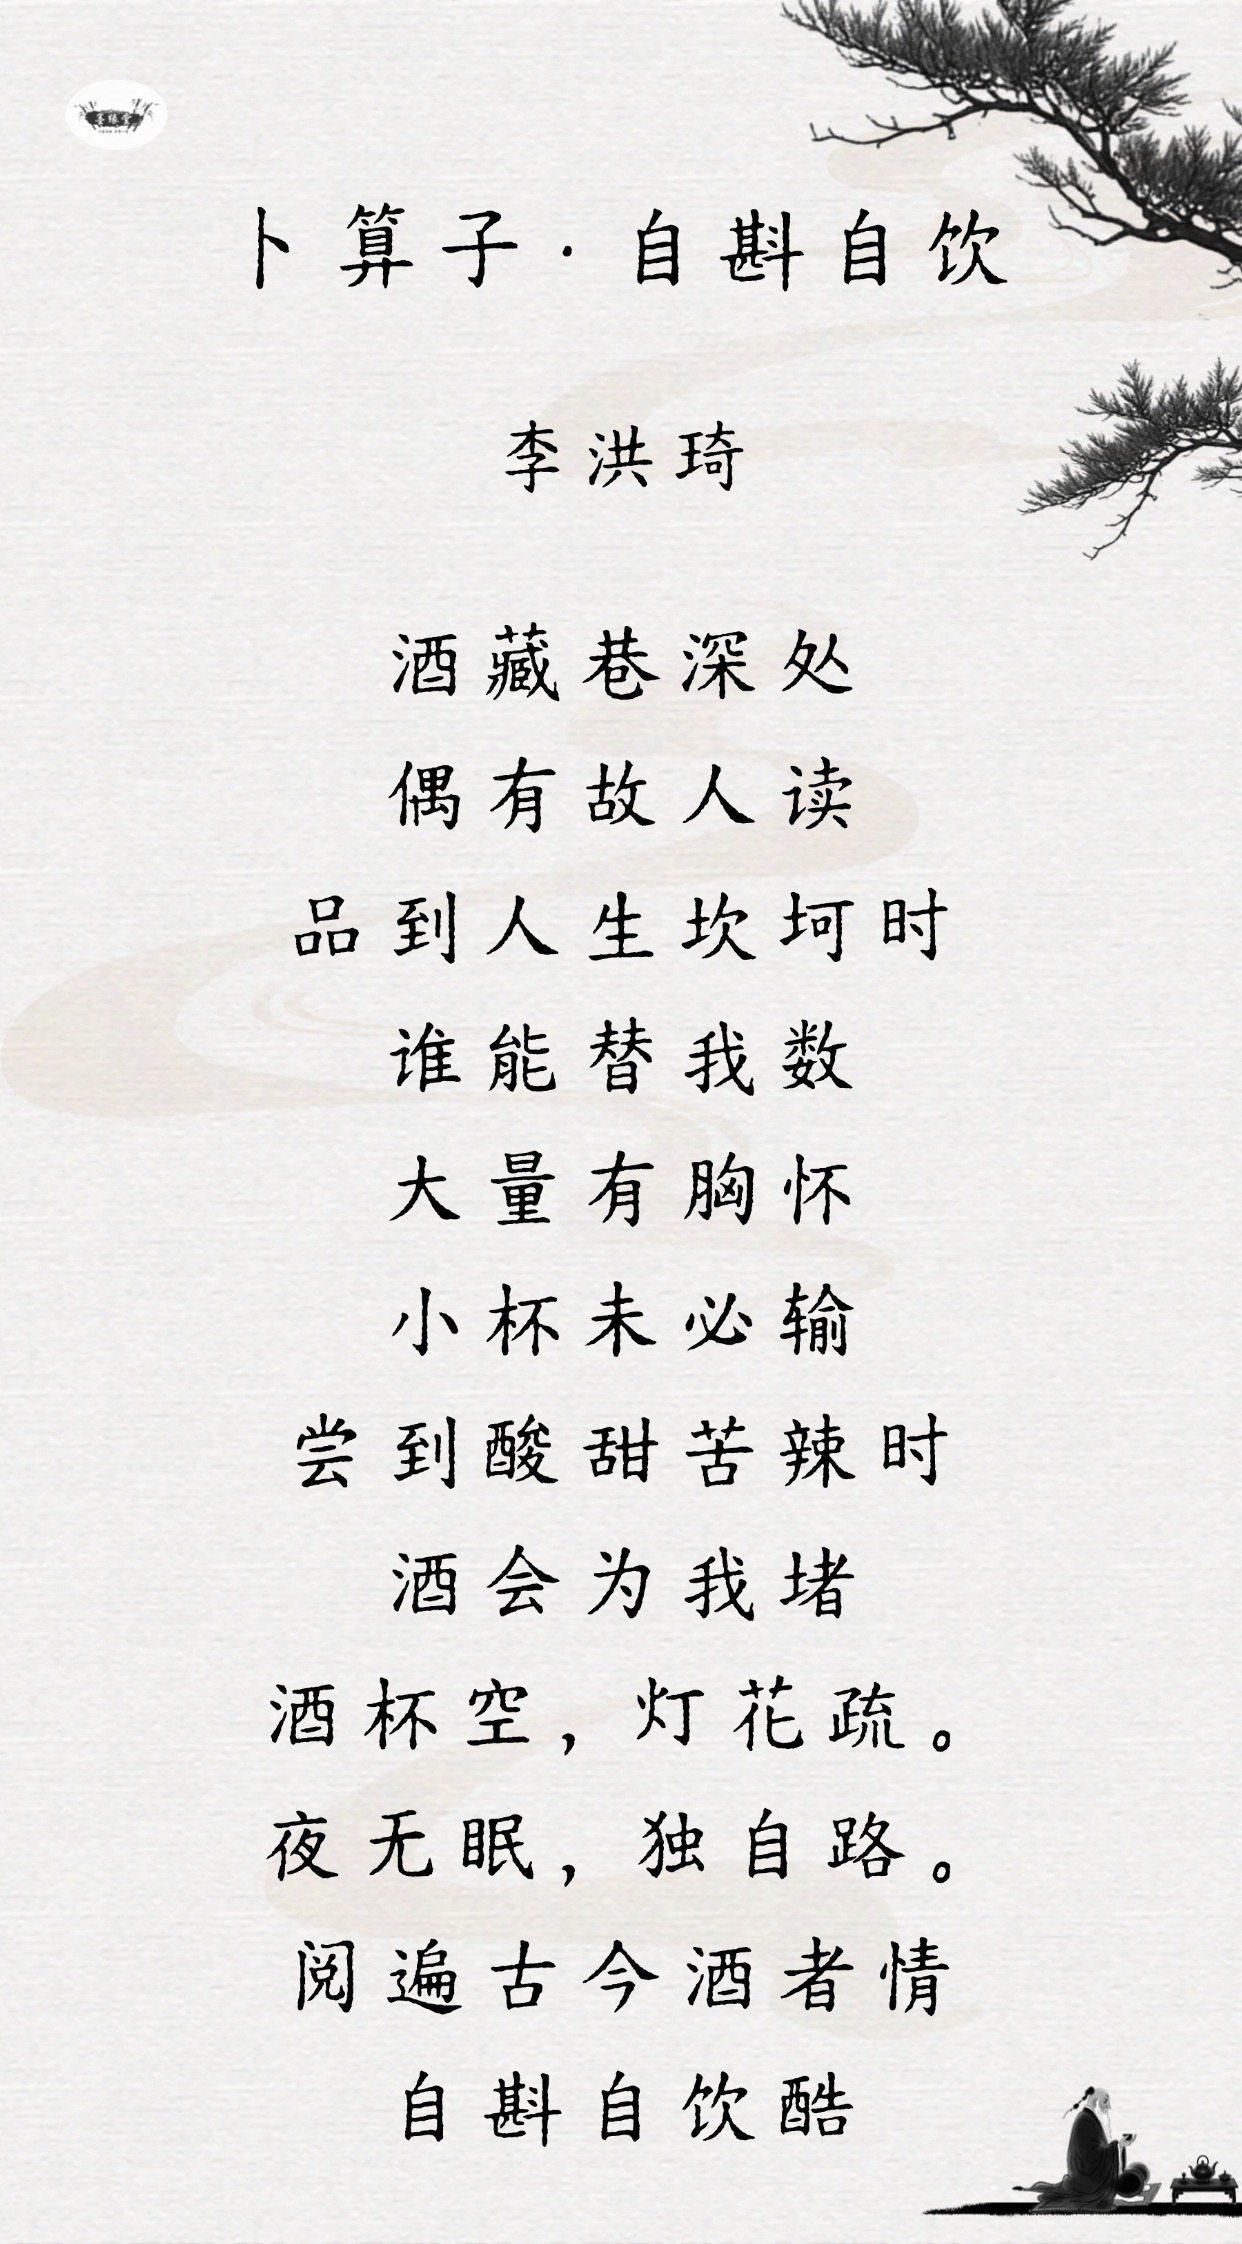 卜算子·自斟自饮
李洪琦
酒藏巷深处
偶有故人读
品到人生坎坷时
谁能替我数
大量有胸怀
小杯未必输
尝到酸甜苦辣时
酒会为我堵
酒杯空，灯花疏。
夜无眠，独自路。
阅遍古今酒者情
自斟自饮酷